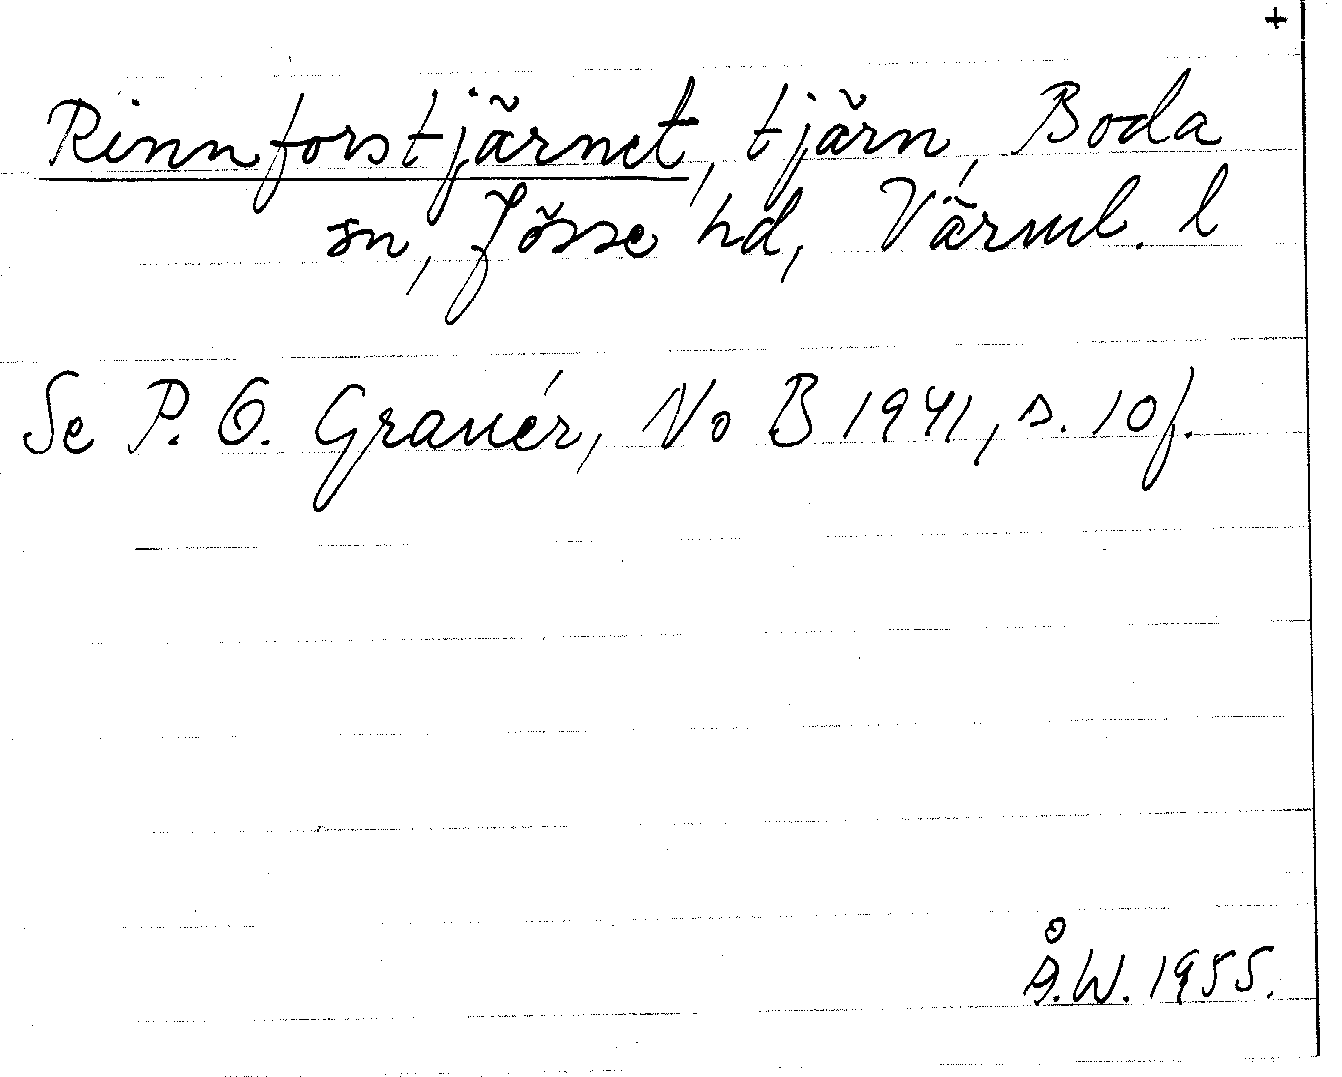 +
Rinnforstjärnet, tjärn, Boda
sn, Jösse hd, Värml. l
Se P. O. Granér, NoB 1941, s. 10 f.
Å.W. 1955.